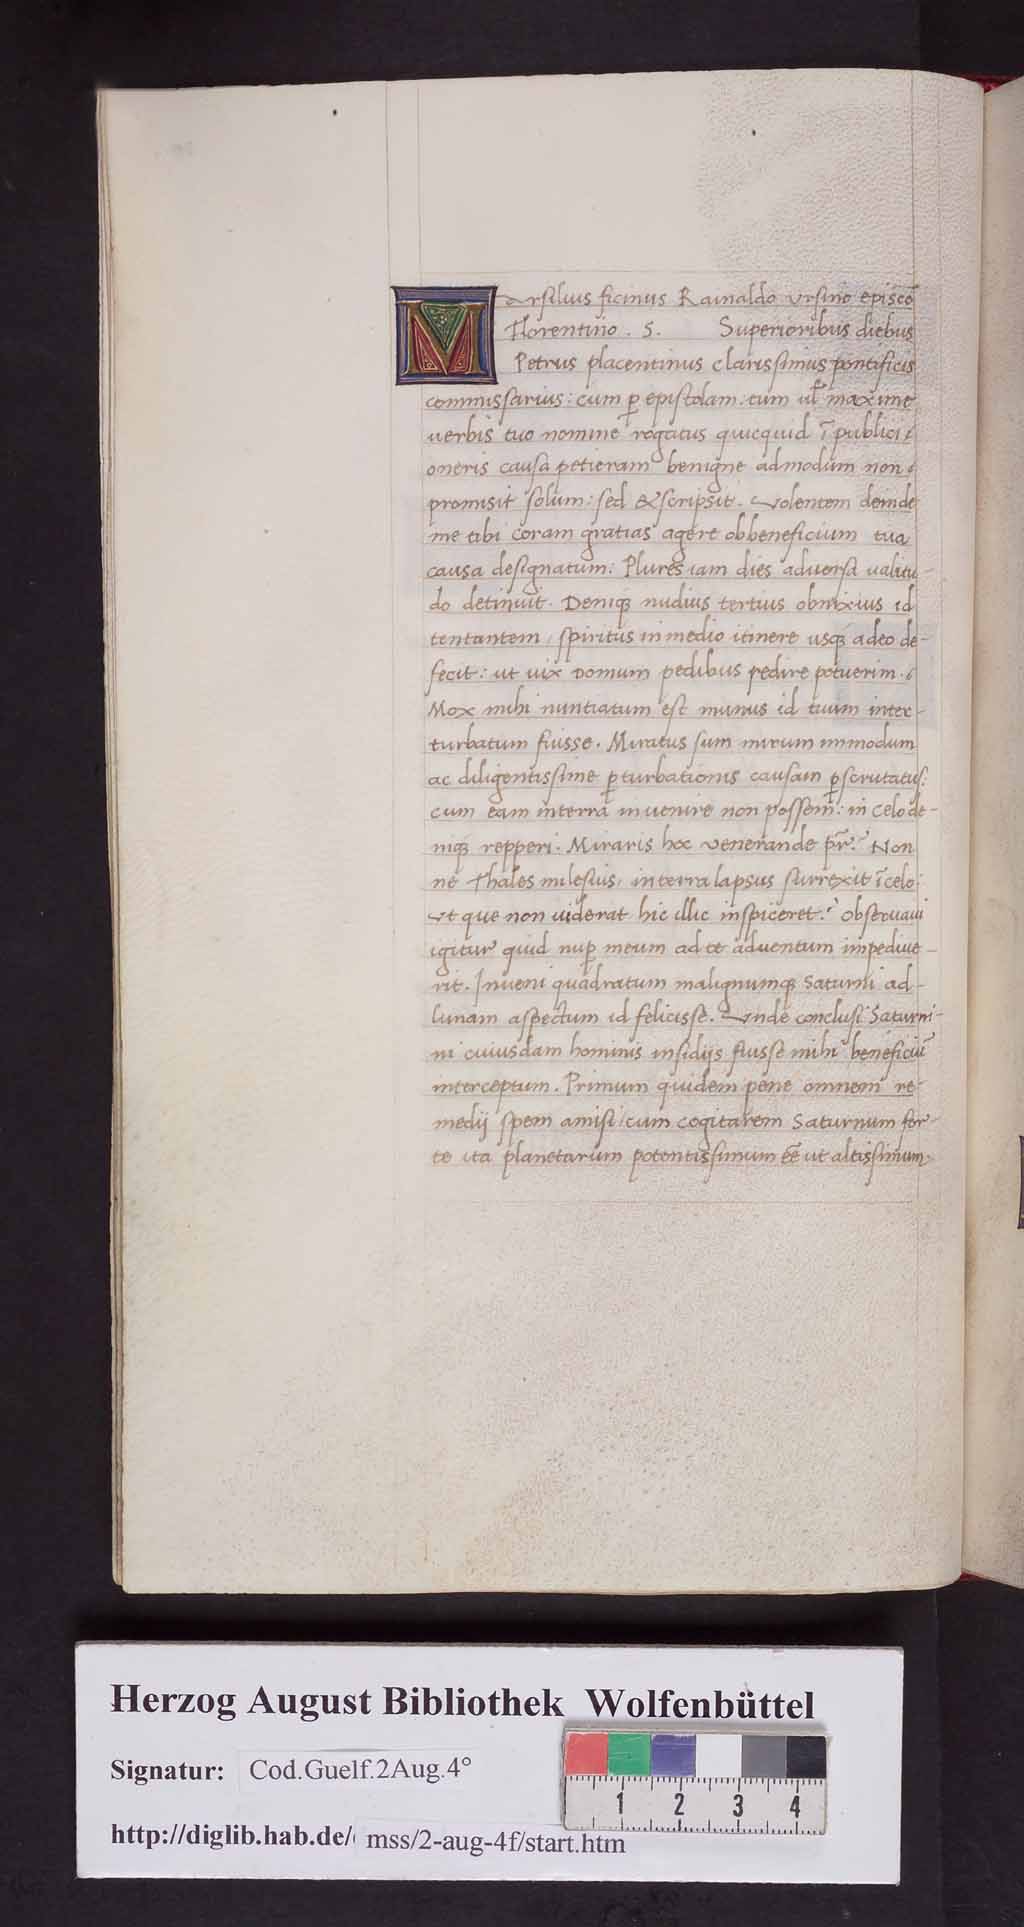 Marsilius ficinus Rainaldo ursino episcō
Florentino . S. Superioribus diebus
Petrus placentinus clarissimus pontificis
commissarius: cum ꝑ epistolam: tum ul̄ maxime
uerbis tuo nomine rogatus quicquid ī publici
oneris causa petieram benigne admodum non
promisit solum: sed & scripsit. Volentem deinde
me tibi coram gratias agere ob beneficium tua
causa designatum: Plures iam dies aduersa ualitu-
do detinuit. Deniqꝫ nudius tertius obnixius id
tentantem, spiritus in medio itinere usqꝫ adeo de-
fecit: ut uix domum pedibus redire potuerim.
Mox mihi nuntiatum est munus id tuum inter-
turbatum fuisse. Miratus sum mirum immodum
ac diligentissime ꝑturbationis causam ꝑscrutatus:
cum eam interra inuenire non possem: in celo de-
niqꝫ repperi. Miraris hoc uenerande pr̄? Non
ne Thales milesius, interra lapsus surrexit ī celo:
ut que non uiderat hic illic inspiceret? Obseruaui
igitur quid nuꝑ meum ad te aduentum impediue-
rit. Inueni quadratum malignumqꝫ Saturni ad-
lunam aspectum id felicisse. Vnde conclusi Saturni-
ni cuiusdam hominis insidijs fuisse mihi beneficiū
interceptum. Primum quidem pene omnem re-
medij spem amisi, cum cogitarem Saturnum for-
te ita planetarum potentissimum eē ut altissimum.
Herzog August Bibliothek Wolfenbüttel
Signatur: Cod.Guelf.2Aug.4°
http://diglib.hab.de/ mss/2-aug-4f/start.htm
1 2 3 4